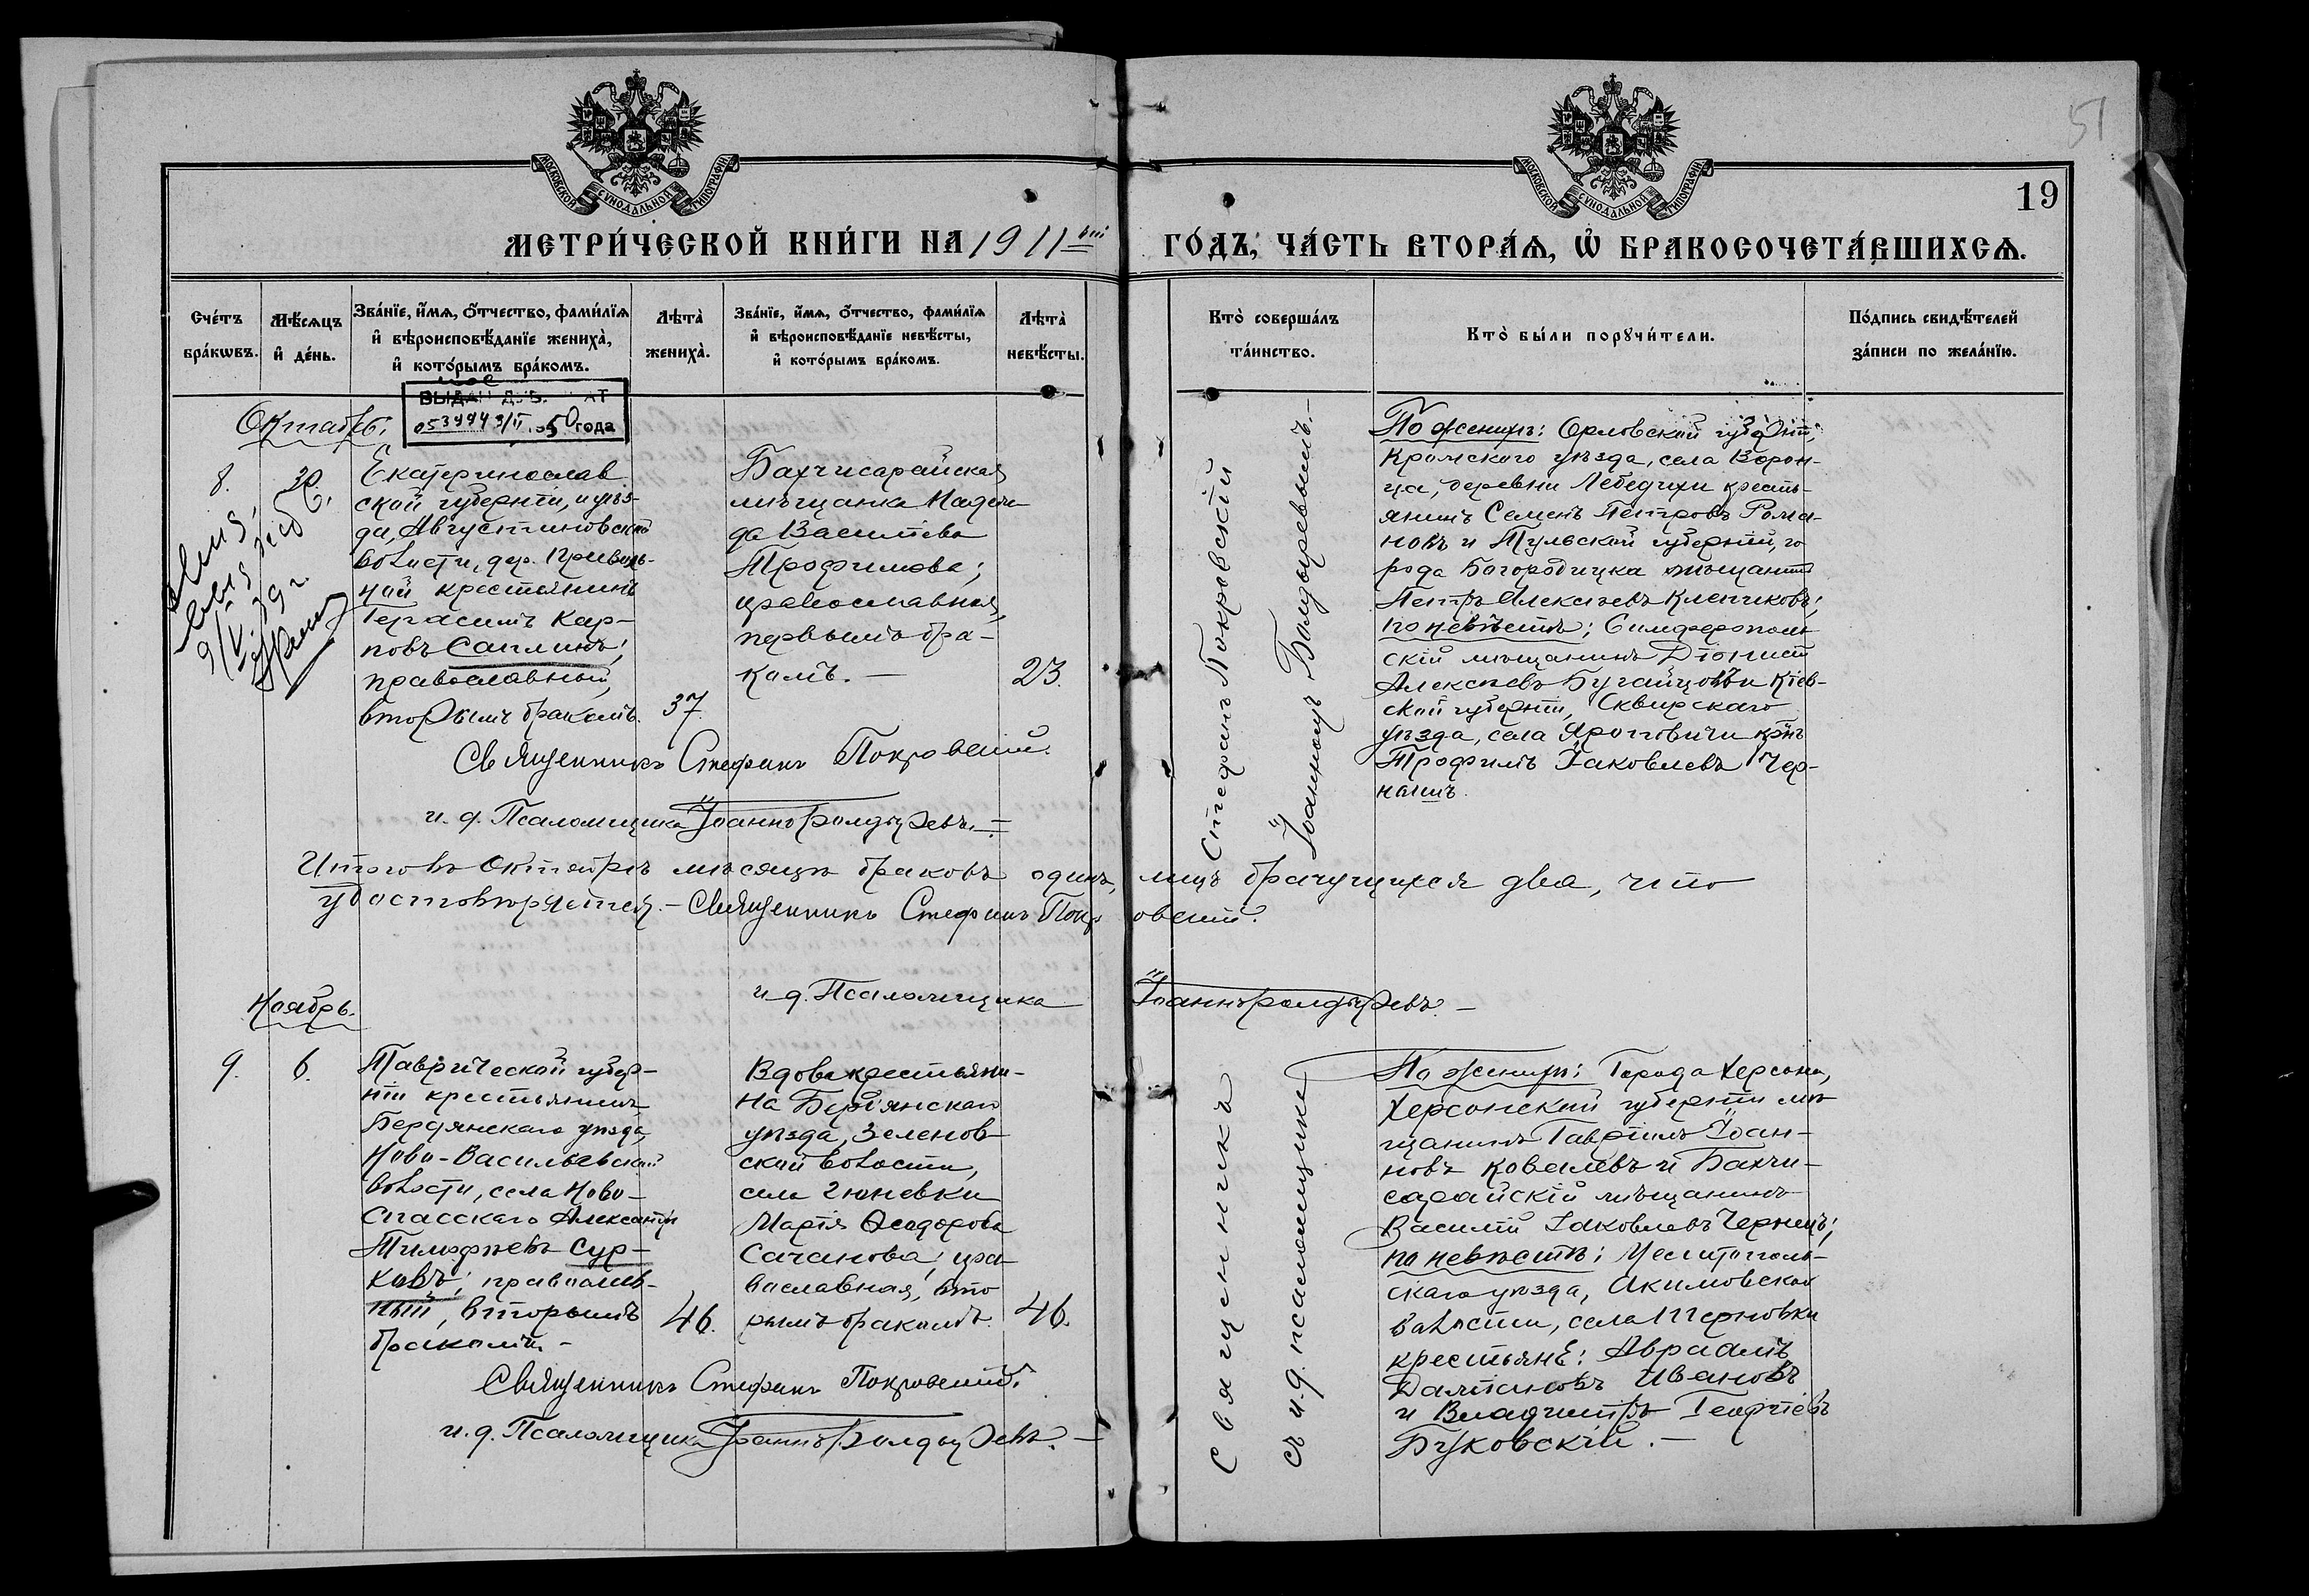 51
МОСКОВСКОЙ СѴНОДАЛЬНОЙ ТИПОГРАФІИ
МОСКОВСКОЙ СѴНОДАЛЬНОЙ ТИПОГРАФІИ
19
МЕТРИ́ЧЕСКОЙ КНИ́ГИ НА 1911ый ГО́ДЪ, ЧА́СТЬ ВТОРА́Ѧ, Ѡ҆ БРАКОСОЧЕТА́ВШИХСѦ.
Сче́тъ
бра́кѡвъ.
Мѣ́сѧцъ
и҆ де́нь.
Зва́нїе, и҆́мѧ, ѻ҆́тчество, фами́лїѧ
и҆ вѣроисповѣ́данїе жениха̀,
и҆ кото́рымъ бра́комъ.
Лѣта̀
жениха̀.
Зва́нїе, и҆́мѧ, ѻ҆́тчество, фами́лїѧ
и҆ вѣроисповѣ́данїе невѣ́сты,
и҆ кото́рымъ бра́комъ.
Лѣта̀
невѣ́сты.
Кто̀ соверша́лъ
та́инство.
Кто̀ бы́ли порꙋчи́тели.
По́дпись свидѣ́телей
за́писи по жела́нїю.
50 года
Октябрь.
8.
30.
Екатеринослав
ской губерніи, и уѣз-
да, Августиновской
волости, дер. Приволь-
ной крестьянинъ
Герасимъ Кар-
повъ Саплинъ;
православный,
вторымъ бракомъ.
37.
Бахчисарайская
мѣщанка Надеж
да Васильева
Трофимова;
православная,
первымъ бра-
комъ. —
23.
Стефанъ Покровскій
Іоанномъ Болдыревымъ. —
По женихѣ: Орловской губерніи,
Кромскаго уѣзда, села Ворон-
ца, деревни Лебедихи кресть-
янинъ Семенъ Петровъ Рома-
новъ и Тульской губерніи, го
рода Богородицка мѣщанинъ
Петръ Алексѣевъ Клепиковъ;
по невѣстѣ: Симферополь
скій мѣщанинъ Діонисій
Алексѣевъ Бугайцовъ и Кіев-
ской губерніи, Сквирскаго
уѣзда, села Яроповичи крнъ
Трофимъ Іаковлевъ Чер-
нышъ.
Священникъ Стефанъ Покровскій.
и. д. Псаломщика Іоаннъ Болдыревъ. —
Итого въ Октябрѣ мѣсяцѣ браковъ одинъ, лицъ брачущихся два, что
удостовѣряется. — Священникъ Стефанъ Покровскій.
и. д. Псаломщика Іоаннъ Болдыревъ. —
Ноябрь.
9.
6.
Таврической губер-
ніи крестьянинъ
Бердянскаго уѣзда,
Ново-Васильевской
волости, села Ново-
Спасскаго Александръ
Тимофѣевъ Сур-
ковъ; православ-
ный, вторымъ
бракомъ. —
46.
Вдова крестьяни-
на Бердянскаго
уѣзда, Зеленов-
ской волости,
села Гюневки
Марія Ѳеодорова
Саченова, пра-
вославная, вто
рымъ бракомъ.
46.
Священникъ
съ и. д. псаломщика
По женихѣ: Города Херсона,
Херсонской губерніи мѣ
щанинъ Гавріилъ Іоан-
новъ Ковалевъ и Бахчи-
сарайскій мѣщанинъ
Василій Іаковлевъ Чернецъ;
по невѣстѣ: Мелитополь-
скаго уѣзда, Акимовской
волости, села Терновки
крестьяне: Авраамъ
Даміановъ Ивановъ
и Владиміръ Георгіевъ
Буковскій. —
Священникъ Стефанъ Покровскій.
и. д. Псаломщика Іоаннъ Болдыревъ. —